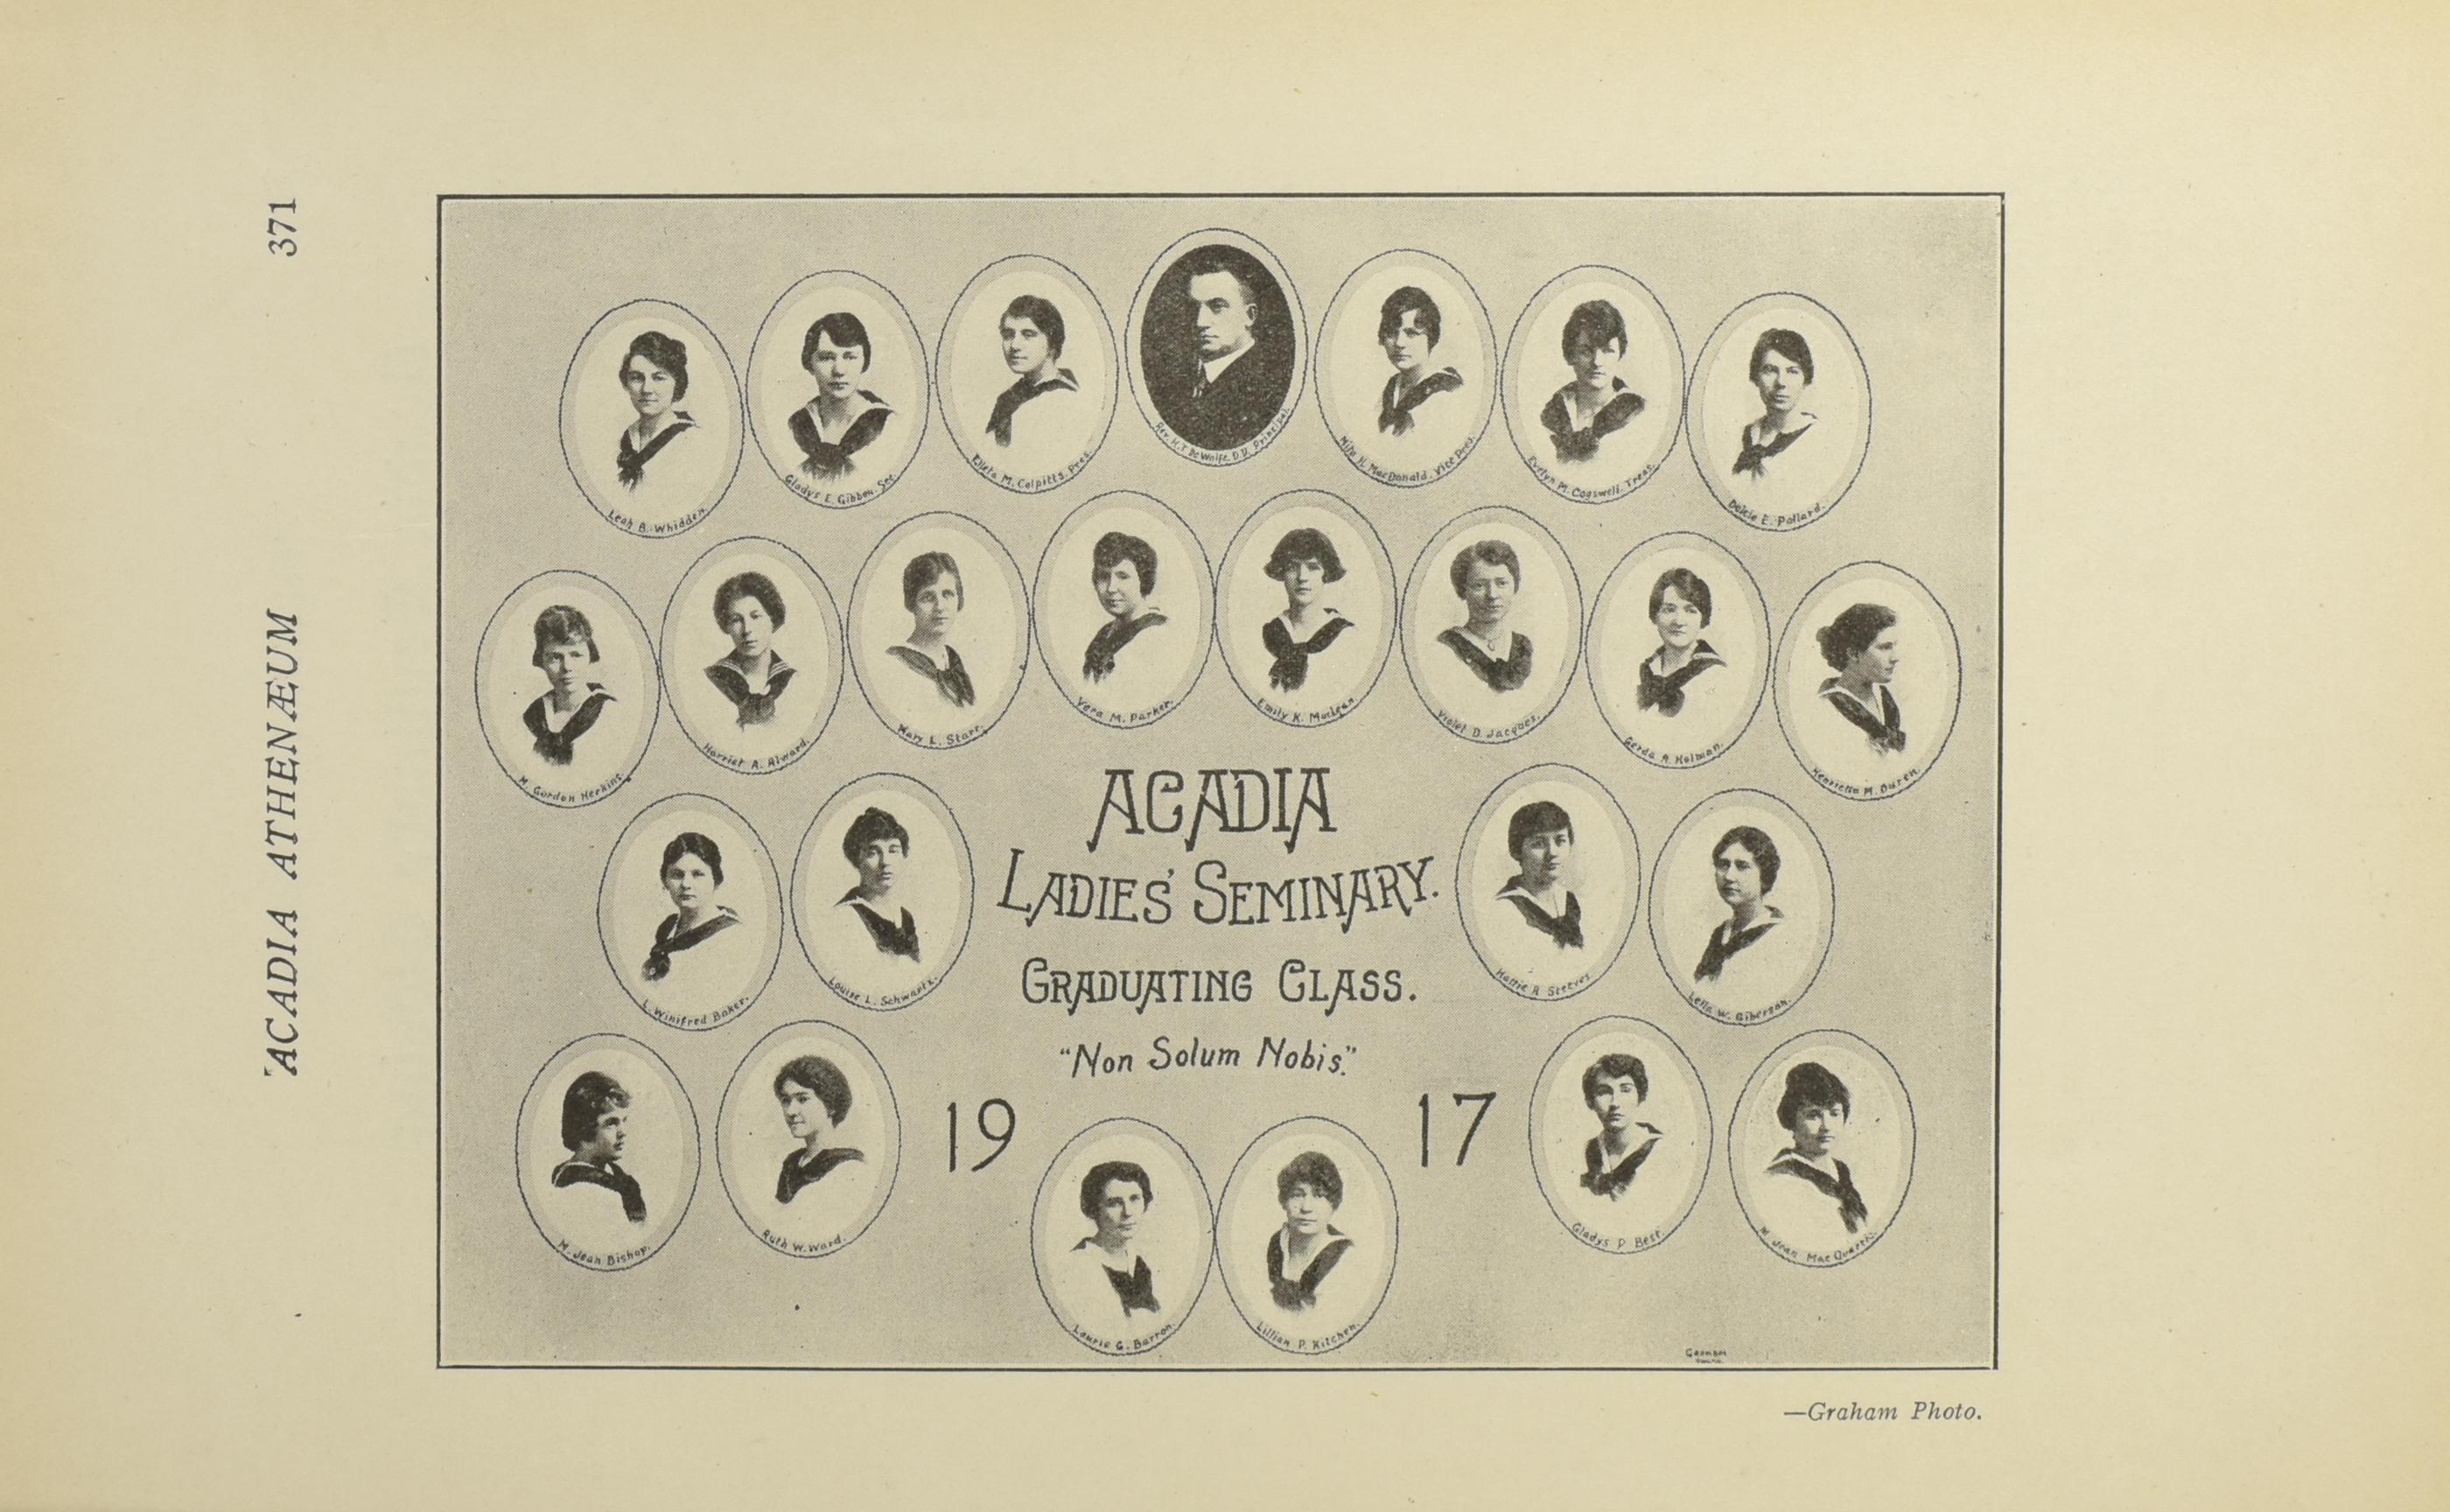 371
ACADIA ATHENÆUM
Leah B. Whidden.
Gladys E. Gibbon. Sec.
M. Colpitts. Pres.
Rev. H. T. DeWolfe. D.D. Principal.
H. MacDonald. Vice Pres.
Evelyn M. Cogswell. Treas.
E. Pollard.
M. Gordon Herkins.
Harriet A. Alward.
Mary L. Starr.
Vera M. Parker.
Emily K. MacLean
Violet D. Jacques.
Gerda A. Holman.
Henrietta M. Duren.
L. Winifred Baker.
Louise L. Schwartz.
ACADIA
LADIES' SEMINARY.
GRADUATING CLASS.
"Non Solum Nobis."
19 17
Hattie A. Steeves
Lella W. Giberson.
M. Jean Bishop.
Ruth W. Ward.
Laurie G. Barron.
Lillian P. Kitchen.
Gladys P. Best.
M. Jean MacQuarrie.
—Graham Photo.